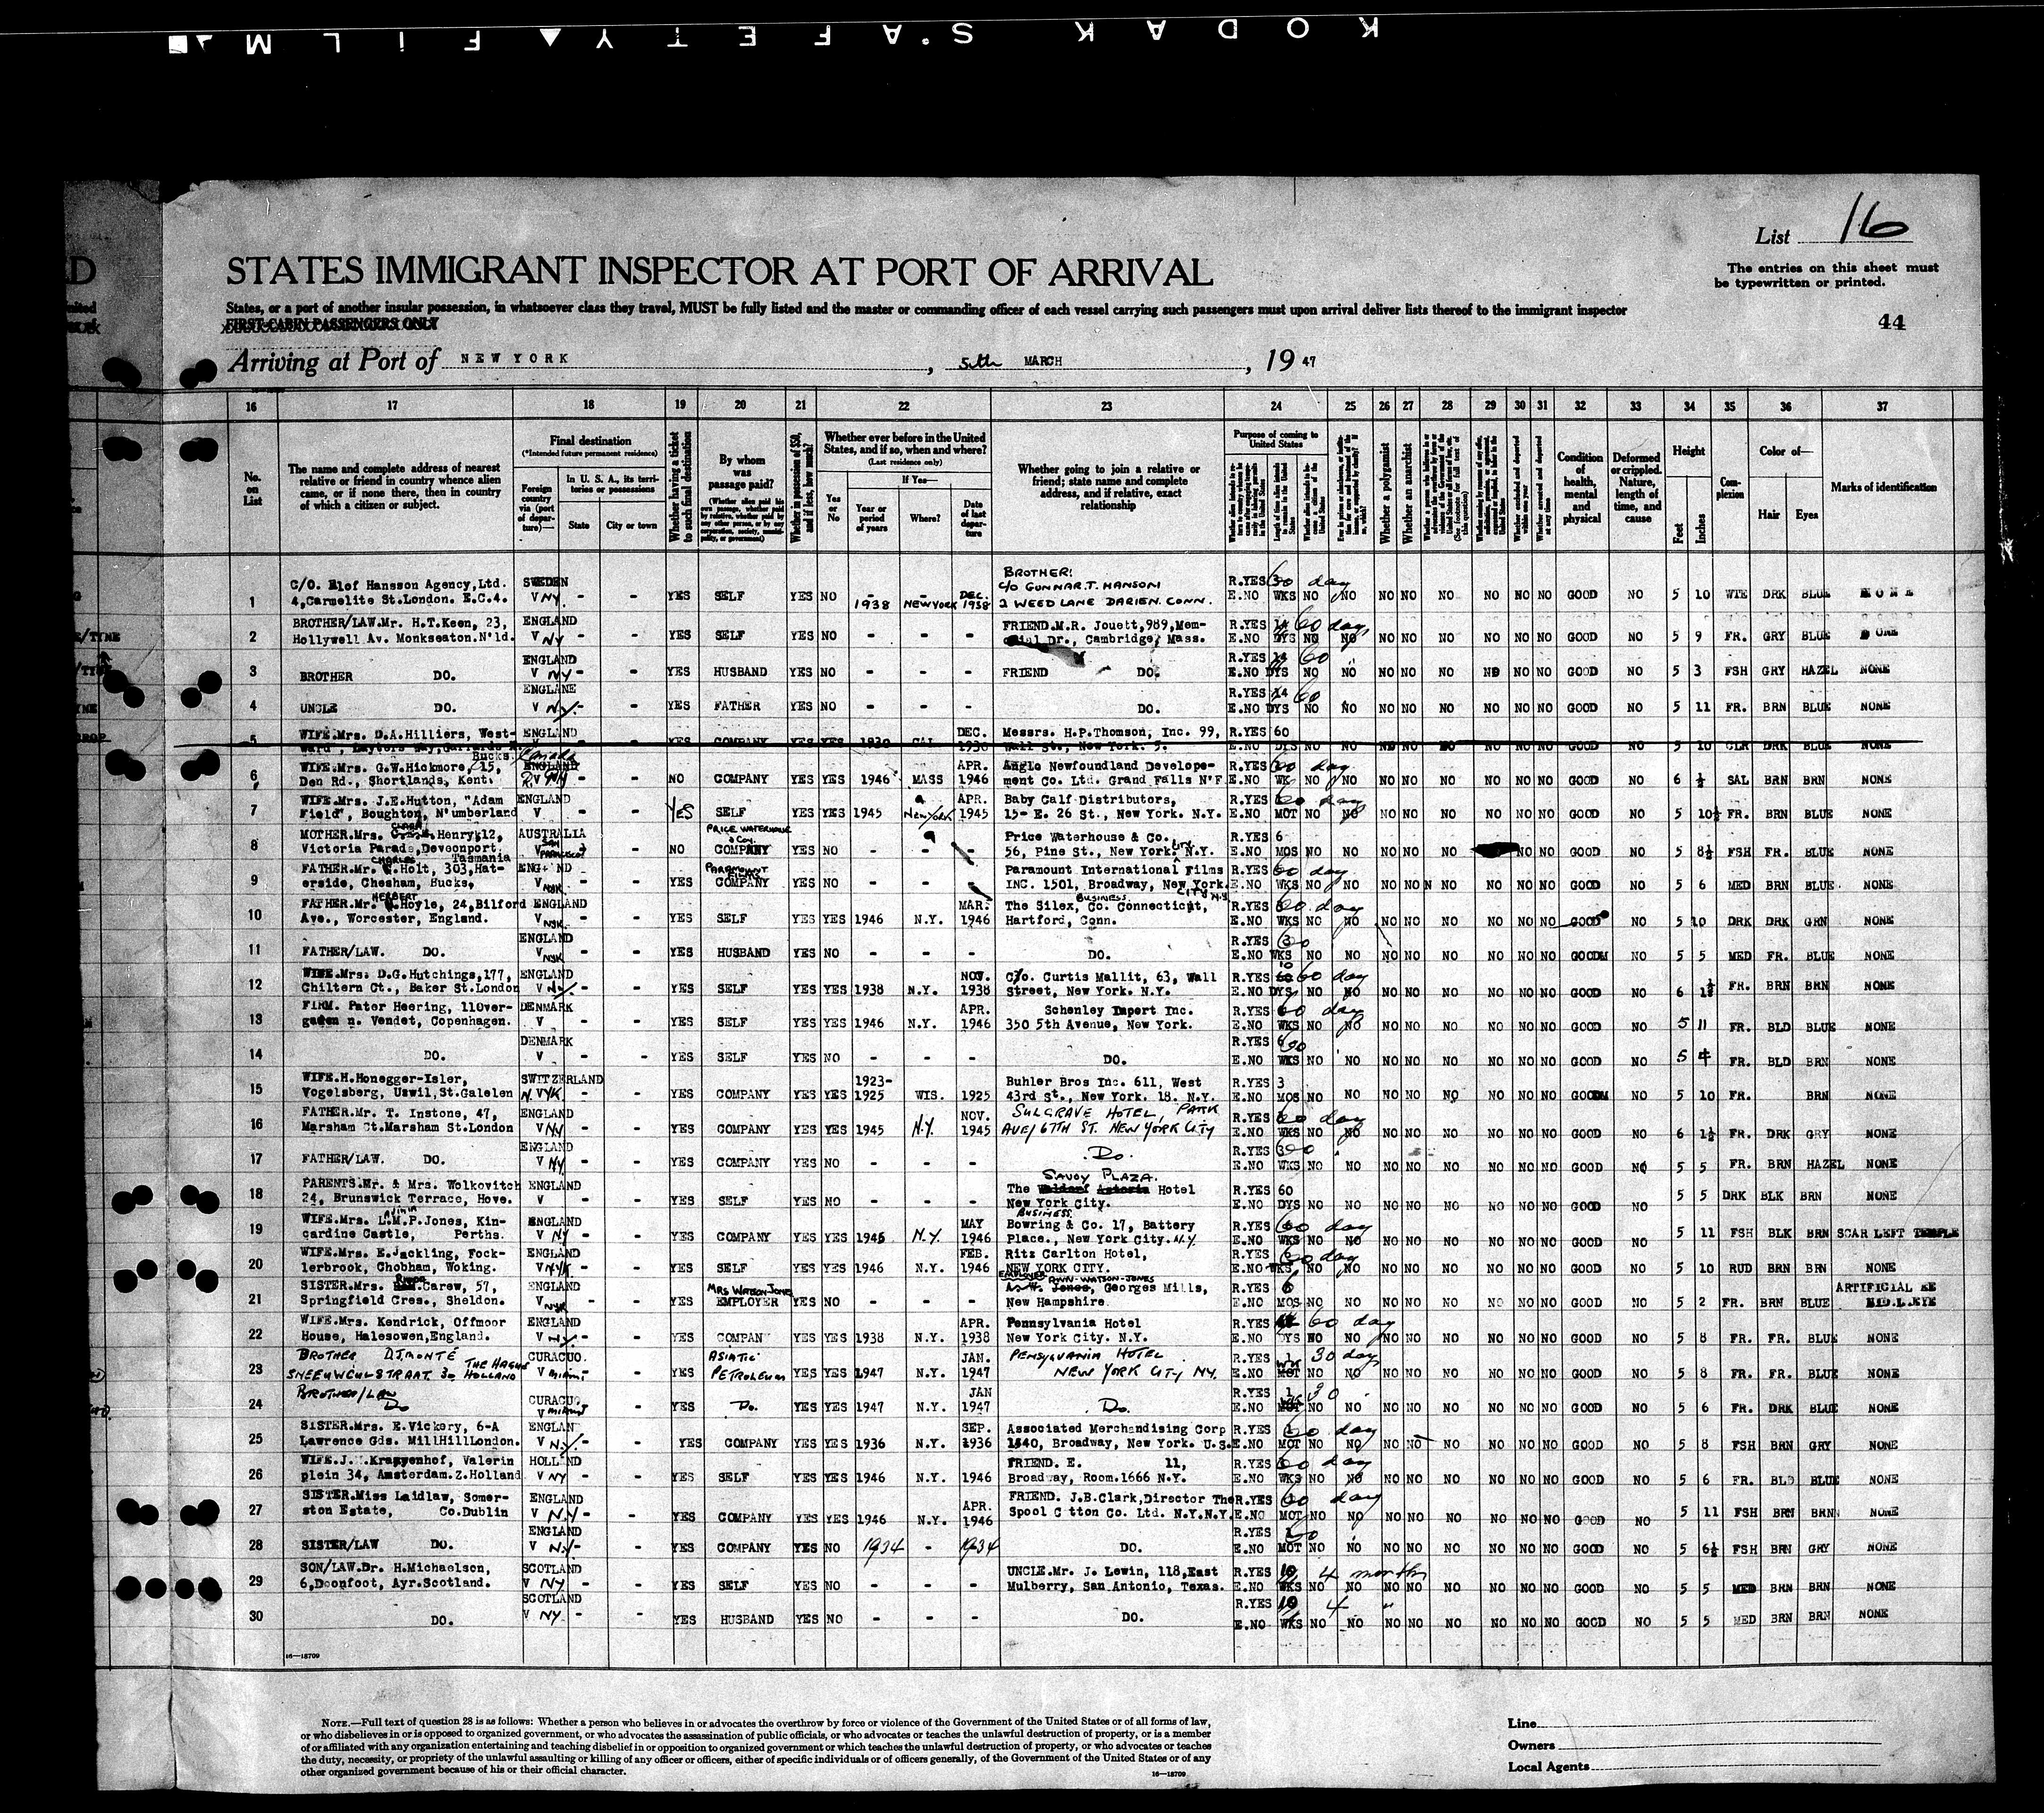 KODAK SAFETY FILM
List 16
The entries on this sheet must
be typewritten or printed.
44
STATES IMMIGRANT INSPECTOR AT PORT OF ARRIVAL
States, or a port of another insular possession, in whatsoever class they travel, MUST be fully listed and the master or commanding officer of each vessel carrying such passengers must upon arrival deliver lists thereof to the immigrant inspector
FIRST-CABIN PASSENGERS ONLY
Arriving at Port of NEW YORK, 5th MARCH, 1947
16 17 18 19 20 21 22 23 24 25 26 27 28 29 30 31 32 33 34 35 36 37
No. on List
The name and complete address of nearest relative or friend in country whence alien came, or if none there, then in country of which a citizen or subject.
Final destination
(*Intended future permanent residence)
Foreign country via (port of departure)—
In U. S. A., its territories or possessions
State
City or town
Whether having a ticket to such final destination
By whom was passage paid?
Whether in possession of $50, and if less, how much?
Whether ever before in the United States, and if so, when and where?
(Last residence only)
Yes or No
If Yes—
Year or period of years
Where?
Date of last departure
Whether going to join a relative or friend; state name and complete address, and if relative, exact relationship
Purpose of coming to United States
Whether a polygamist
Whether an anarchist
Condition of health, mental and physical
Deformed or crippled. Nature, length of time, and cause
Height
Feet
Inches
Complexion
Color of—
Hair
Eyes
Marks of identification
1 C/O. Elof Hansson Agency,Ltd. 4,Carmelite St.London. E.C.4. SWEDEN V NY. - - YES SELF YES NO 1938 NEW YORK DEC. 1938 BROTHER: C/O GUNNAR.T. HANSON 2 WEED LANE DARIEN. CONN. R.YES 60 day E.NO WKS NO NO NO NO NO NO NO NO GOOD NO 5 10 WTE DRK BLUE NONE
2 BROTHER/LAW.Mr. H.T.Keen, 23, Hollywell Av. Monkseaton.N'ld. ENGLAND V NY - - YES SELF YES NO - - - FRIEND.M.R. Jouett,989,Memorial Dr., Cambridge, Mass. R.YES 14 60 day E.NO DYS NO NO NO NO NO NO NO NO GOOD NO 5 9 FR. GRY BLUE NONE
3 BROTHER DO. ENGLAND V NY - - YES HUSBAND YES NO - - - FRIEND DO. R.YES 14 60 E.NO DYS NO NO NO NO NO NO NO NO GOOD NO 5 3 FSH GRY HAZEL NONE
4 UNCLE DO. ENGLANE V NY. - - YES FATHER YES NO - - - DO. R.YES 14 60 E.NO DYS NO NO NO NO NO NO NO NO GOOD NO 5 11 FR. BRN BLUE NONE
5 WIFE.Mrs. D.A.Hilliers, West- Bucks. ENGLAND YES COMPANY YES YES 1930 CAL DEC. Messrs. H.P.Thomson, Inc. 99, Wall St., New York. 5. R.YES 60 E.NO DYS NO NO NO NO NO NO NO NO GOOD NO 5 10 CLR DRK BLUE NONE
6 WIFE.Mrs. G.W.Hickmore, 15, Den Rd., Shortlands, Kent. Canada ENGLAND - - NO COMPANY YES YES 1946 MASS APR. 1946 Anglo Newfoundland Development Co. Ltd. Grand Falls N'F. R.YES 60 day E.NO WK NO NO NO NO NO NO NO NO GOOD NO 6 ½ SAL BRN BRN NONE
7 WIFE.Mrs. J.E.Hutton, "Adam Field", Boughton, N'umberland ENGLAND V - - YES SELF YES YES 1945 New York APR. 1945 Baby Calf Distributors, 15- E. 26 St., New York. N.Y. R.YES 60 day E.NO MOT NO NO NO NO NO NO NO NO GOOD NO 5 10½ FR. BRN BLUE NONE
8 MOTHER.Mrs. Henry,12, Victoria Parade,Devenport. Tasmania AUSTRALIA V SAN FRANCISCO - NO PRICE WATERHOUSE & Coy. COMPANY YES NO - - Price Waterhouse & Co., 56, Pine St., New York. CITY N.Y. R.YES 6 E.NO MOS NO NO NO NO NO NO NO GOOD NO 5 8½ FSH FR. BLUE NONE
9 FATHER.Mr. CHARLES Holt, 303,Hat- erside, Chesham, Bucks. ENGLAND V NYK - - YES PARAMOUNT FILMS COMPANY YES NO - - - Paramount International Films INC. 1501, Broadway, New York. CITY N.Y. R.YES 60 day E.NO WKS NO NO NO NO NO NO NO NO GOOD NO 5 6 MED BRN BLUE NONE
10 FATHER.Mr. HERBERT Hoyle, 24,Bilford Ave., Worcester, England. ENGLAND V NYK. - - YES SELF YES YES 1946 N.Y. MAR. 1946 The Silex, Co. Connecticut, BUSINESS Hartford, Conn. R.YES 60 day E.NO WKS NO NO NO NO NO NO NO NO GOOD NO 5 10 DRK DRK GRN NONE
11 FATHER/LAW. DO. ENGLAND V NYK - - YES HUSBAND YES NO - - - DO. R.YES 60 E.NO WKS NO NO NO NO NO NO NO NO GOOD NO 5 5 MED FR. BLUE NONE
12 WIFE.Mrs. D.G.Hutchings,177, Chiltern Ct., Baker St.London ENGLAND V N.Y. - - YES SELF YES YES 1938 N.Y. NOV. 1938 C/o. Curtis Mallit, 63, Wall Street, New York. N.Y. R.YES 60 day E.NO DYS NO NO NO NO NO NO NO NO GOOD NO 6 1½ FR. BRN BRN NONE
13 FIRM. Pater Heering, 11Over- gaden n. Vendet, Copenhagen. DENMARK V - - YES SELF YES YES 1946 N.Y. APR. 1946 Schenley Import Inc. 350 5th Avenue, New York. R.YES 60 day E.NO WKS NO NO NO NO NO NO NO NO GOOD NO 5 11 FR. BLD BLUE NONE
14 DO. DENMARK V - - YES SELF YES NO - - - DO. R.YES 60 E.NO WKS NO NO NO NO NO NO NO NO GOOD NO 5 4 FR. BLD BRN NONE
15 WIFE.H.Honegger-Isler, Vogelsberg, Uzwil,St.Galelen SWITZERLAND N.YK. - - YES COMPANY YES YES 1923-1925 WIS. 1925 Buhler Bros Inc. 611, West 43rd St., New York. 18. N.Y. R.YES 3 E.NO MOS NO NO NO NO NO NO NO NO GOOD NO 5 10 FR. BRN NONE
16 FATHER.Mr. T. Instone, 47, Marsham Ct.Marsham St.London ENGLAND V NY - - YES COMPANY YES YES 1945 N.Y. NOV. 1945 SULGRAVE HOTEL, PARK AVE/67TH ST. NEW YORK CITY R.YES 60 day E.NO WKS NO NO NO NO NO NO NO NO GOOD NO 6 1½ FR. DRK GRY NONE
17 FATHER/LAW. DO. ENGLAND V NY - - YES COMPANY YES NO - - - Do. R.YES E.NO WKS NO NO NO NO NO NO NO GOOD NO 5 5 FR. BRN HAZEL NONE
18 PARENTS.Mr. & Mrs. Wolkovitch 24, Brunswick Terrace, Hove. ENGLAND V - - YES SELF YES NO - - - SAVOY PLAZA. The Waldorf Astoria Hotel New York City. R.YES 60 E.NO DYS NO NO NO NO NO NO NO NO GOOD NO 5 5 DRK BLK BRN NONE
19 WIFE.Mrs. L.M.P.Jones, Kin- cardine Castle, Perths. ENGLAND V NY - - YES COMPANY YES YES 1946 N.Y. MAY 1946 BUSINESS. Bowring & Co. 17, Battery Place., New York City. N.Y. R.YES 60 day E.NO WKS NO NO NO NO NO NO NO NO GOOD NO 5 11 FSH BLK BRN SCAR LEFT TEMPLE
20 WIFE.Mrs. E.Jackling, Fock- lerbrook, Chobham, Woking. ENGLAND V NYK - - YES SELF YES YES 1946 N.Y. FEB. 1946 Ritz Carlton Hotel, NEW YORK CITY. R.YES 60 day E.NO WKS NO NO NO NO NO NO NO NO GOOD NO 5 10 RUD BRN BRN NONE
21 SISTER.Mrs. Carew, 57, Springfield Cres., Sheldon. ENGLAND V NYK - - YES MRS WATSON-JONES EMPLOYER YES NO - - - EMPLOYER ANN-WATSON-JONES Jones, Georges Mills, New Hampshire. R.YES 6 E.NO MOS NO NO NO NO NO NO NO NO GOOD NO 5 2 FR. BRN BLUE ARTIFICIAL
22 WIFE.Mrs. Kendrick, Offmoor House, Halesowen,England. ENGLAND V NY. - - YES COMPANY YES YES 1938 N.Y. APR. 1938 Pennsylvania Hotel New York City. N.Y. R.YES 60 day E.NO DYS NO NO NO NO NO NO NO NO GOOD NO 5 8 FR. FR. BLUE NONE
23 BROTHER DJMONTÉ SNEEUWCULSTRAAT 30 THE HAGUE HOLLAND CURACUO. V MIAMI - - YES ASIATIC PETROLEUM YES YES 1947 N.Y. JAN. 1947 PENSYLVANIA HOTEL NEW YORK CITY NY. R.YES 1 30 day E.NO MOT NO NO NO NO NO NO NO NO GOOD NO 5 8 FR. FR. BLUE NONE
24 BROTHER/LAW Do CURACUO. V MIAMI - - YES Do. YES YES 1947 N.Y. JAN 1947 Do. R.YES 1 30 E.NO MOT NO NO NO NO NO NO NO NO GOOD NO 5 6 FR. DRK BLUE NONE
25 SISTER.Mrs. E.Vickery, 6-A Lawrence Gds. MillHillLondon. ENGLAN V N.Y. - - YES COMPANY YES YES 1936 N.Y. SEP. 1936 Associated Merchandising Corp 1440, Broadway, New York. U.S. R.YES 60 day E.NO MOT NO NO NO NO NO NO NO NO GOOD NO 5 8 FSH BRN GRY NONE
26 WIFE.J. Krayvenhof, Valerin plein 34, Amsterdam.Z.Holland HOLLAND V NY - - YES SELF YES YES 1946 N.Y. 1946 FRIEND. E. 11, Broadway, Room.1666 N.Y. R.YES 60 day E.NO WKS NO NO NO NO NO NO NO NO GOOD NO 5 6 FR. BLD BLUE NONE
27 SISTER.Miss Laidlaw, Somer- ston Estate, Co.Dublin ENGLAND V N.Y - - YES COMPANY YES YES 1946 N.Y. APR. 1946 FRIEND. J.B.Clark,Director The Spool Cotton Co. Ltd. N.Y.N.Y. R.YES 60 day E.NO MOT NO NO NO NO NO NO NO NO GOOD NO 5 11 FSH BRN BRN NONE
28 SISTER/LAW DO. ENGLAND V N.Y. - YES COMPANY YES NO 1934 - 1934 DO. R.YES 60 E.NO MOT NO NO NO NO NO NO NO NO GOOD NO 5 6½ FSH BRN GRY NONE
29 SON/LAW.Dr. H.Michaelson, 6,Doonfoot, Ayr.Scotland. SCOTLAND V NY - - YES SELF YES NO - - - UNCLE.Mr. J. Lewin, 118,East Mulberry, San.Antonio, Texas. R.YES 10 4 months E.NO WKS NO NO NO NO NO NO NO NO GOOD NO 5 5 MED BRN BRN NONE
30 DO. SCOTLAND V NY - - YES HUSBAND YES NO - - - DO. R.YES 10 4 " E.NO WKS NO NO NO NO NO NO NO NO GOOD NO 5 5 MED BRN BRN NONE
16—18709
NOTE.—Full text of question 28 is as follows: Whether a person who believes in or advocates the overthrow by force or violence of the Government of the United States or of all forms of law,
or who disbelieves in or is opposed to organized government, or who advocates the assassination of public officials, or who advocates or teaches the unlawful destruction of property, or is a member
of or affiliated with any organization entertaining and teaching disbelief in or opposition to organized government or which teaches the unlawful destruction of property, or who advocates or teaches
the duty, necessity, or propriety of the unlawful assaulting or killing of any officer or officers, either of specific individuals or of officers generally, of the Government of the United States or of any
other organized government because of his or their official character.
16—18709
Line
Owners
Local Agents